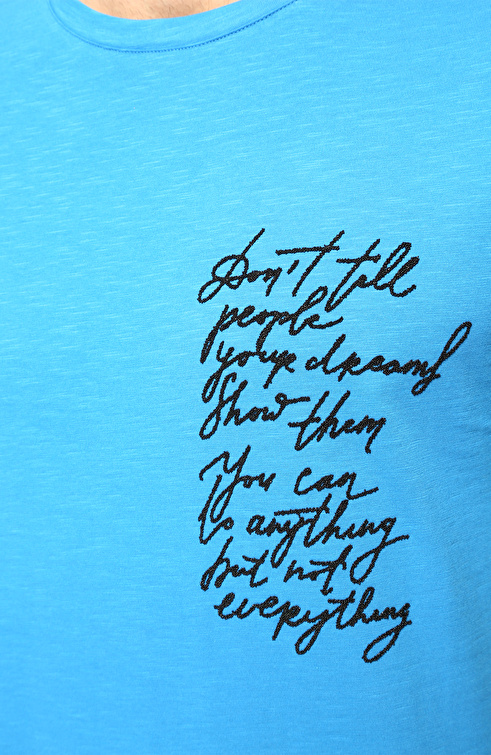 Don't tell
people
your dreams
Show them
You can
is anything
but not
everything